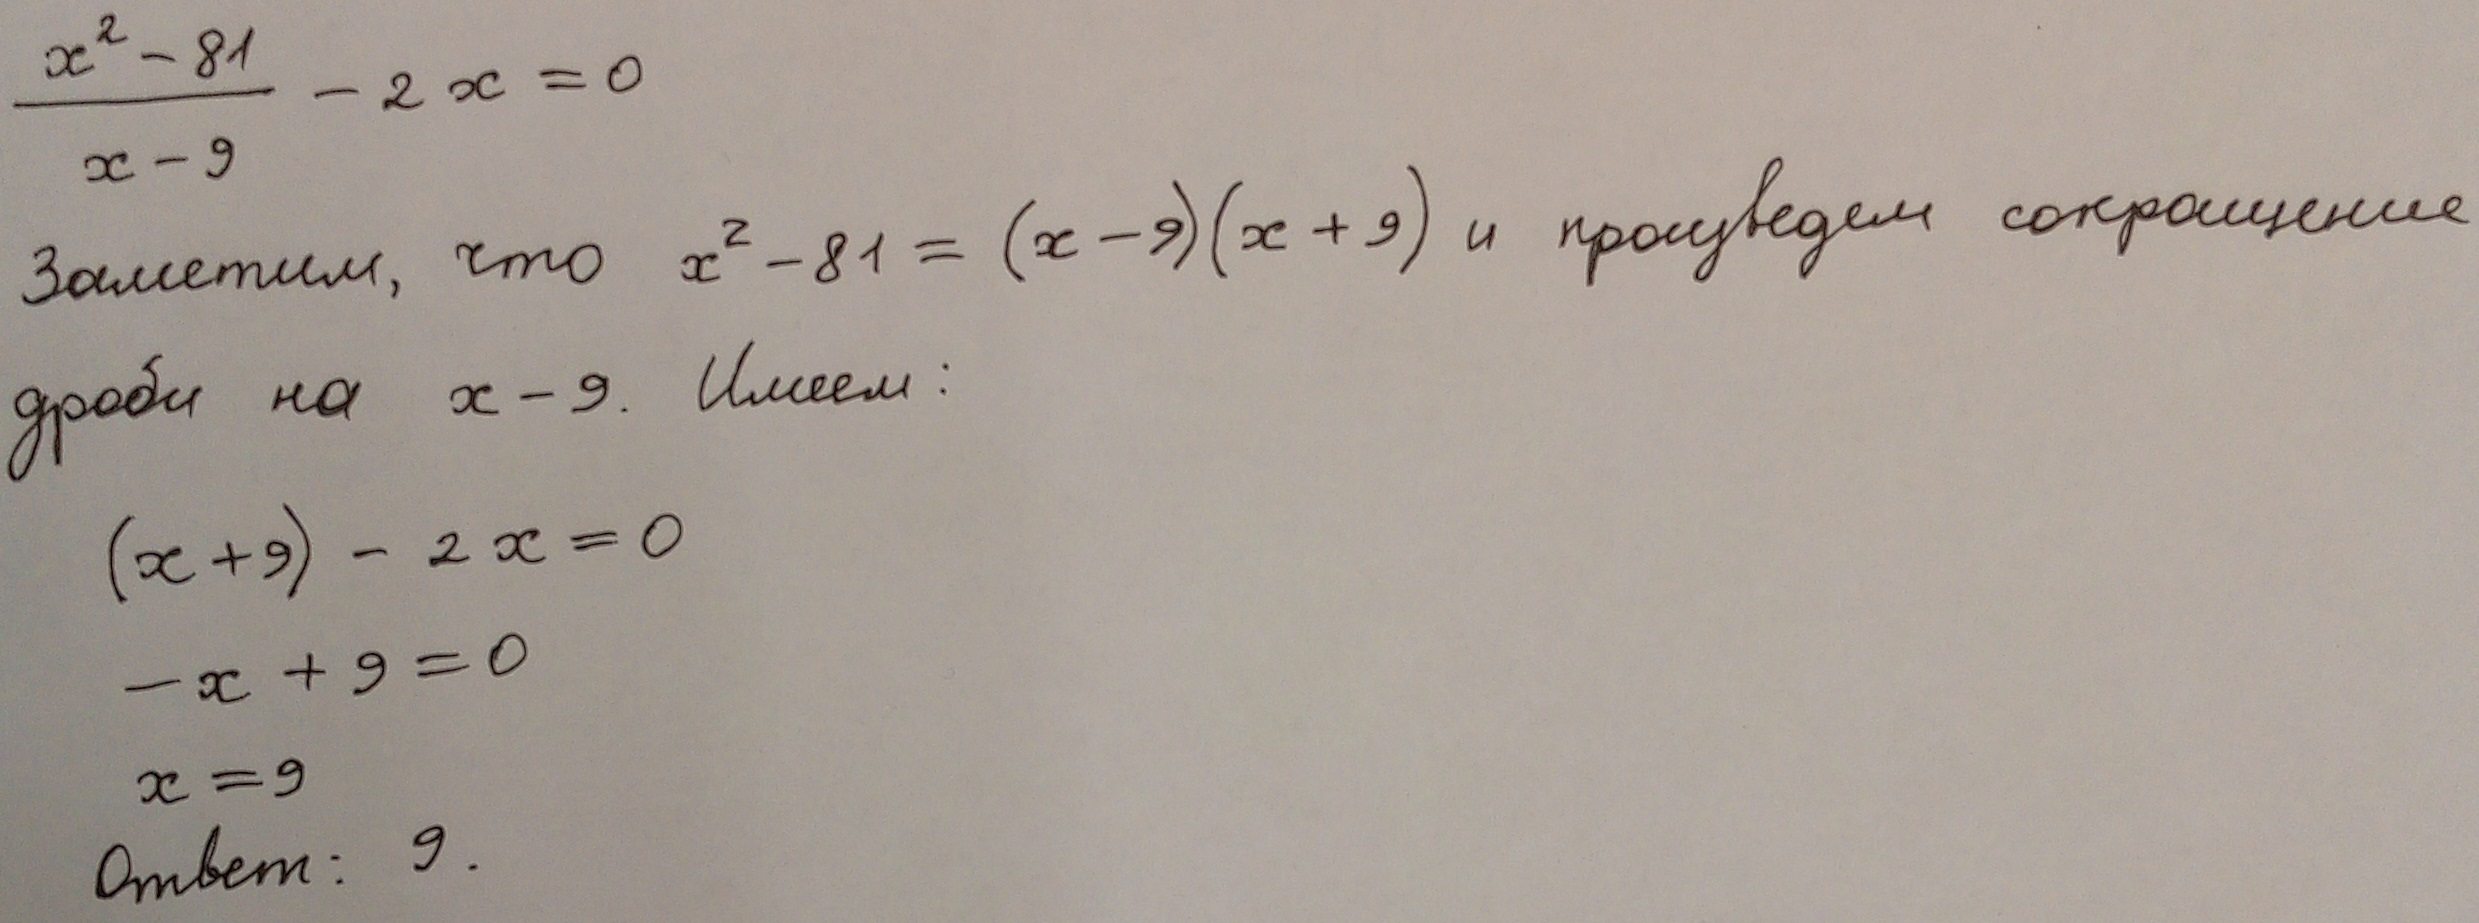 x² - 81
───── - 2x = 0
x - 9
Заметим, что x² - 81 = (x - 9)(x + 9) и произведем сокращение
дроби на x - 9. Имеем:
(x + 9) - 2x = 0
-x + 9 = 0
x = 9
Ответ: 9.